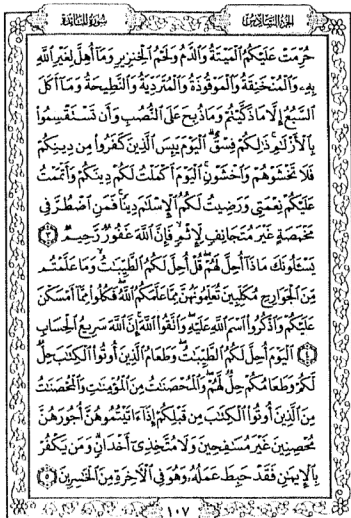 الجزء السادس سورة المائدة
حُرِّمَتْ عَلَيْكُمُ الْمَيْتَةُ وَالدَّمُ وَلَحْمُ الْخِنزِيرِ وَمَا أُهِلَّ لِغَيْرِ اللَّهِ
بِهِ وَالْمُنْخَنِقَةُ وَالْمَوْقُوذَةُ وَالْمُتَرَدِّيَةُ وَالنَّطِيحَةُ وَمَا أَكَلَ
السَّبُعُ إِلَّا مَا ذَكَّيْتُمْ وَمَا ذُبِحَ عَلَى النُّصُبِ وَأَن تَسْتَقْسِمُوا
بِالْأَزْلَامِ ذَلِكُمْ فِسْقٌ الْيَوْمَ يَئِسَ الَّذِينَ كَفَرُوا مِن دِينِكُمْ
فَلَا تَخْشَوْهُمْ وَاخْشَوْنِ الْيَوْمَ أَكْمَلْتُ لَكُمْ دِينَكُمْ وَأَتْمَمْتُ
عَلَيْكُمْ نِعْمَتِي وَرَضِيتُ لَكُمُ الْإِسْلَامَ دِينًا فَمَنِ اضْطُرَّ فِي
مَخْمَصَةٍ غَيْرَ مُتَجَانِفٍ لِّإِثْمٍ فَإِنَّ اللَّهَ غَفُورٌ رَّحِيمٌ ٣
يَسْأَلُونَكَ مَاذَا أُحِلَّ لَهُمْ قُلْ أُحِلَّ لَكُمُ الطَّيِّبَاتُ وَمَا عَلَّمْتُم
مِّنَ الْجَوَارِحِ مُكَلِّبِينَ تُعَلِّمُونَهُنَّ مِمَّا عَلَّمَكُمُ اللَّهُ فَكُلُوا مِمَّا أَمْسَكْنَ
عَلَيْكُمْ وَاذْكُرُوا اسْمَ اللَّهِ عَلَيْهِ وَاتَّقُوا اللَّهَ إِنَّ اللَّهَ سَرِيعُ الْحِسَابِ
٤ الْيَوْمَ أُحِلَّ لَكُمُ الطَّيِّبَاتُ وَطَعَامُ الَّذِينَ أُوتُوا الْكِتَابَ حِلٌّ
لَّكُمْ وَطَعَامُكُمْ حِلٌّ لَّهُمْ وَالْمُحْصَنَاتُ مِنَ الْمُؤْمِنَاتِ وَالْمُحْصَنَاتُ
مِنَ الَّذِينَ أُوتُوا الْكِتَابَ مِن قَبْلِكُمْ إِذَا آتَيْتُمُوهُنَّ أُجُورَهُنَّ
مُحْصِنِينَ غَيْرَ مُسَافِحِينَ وَلَا مُتَّخِذِي أَخْدَانٍ وَمَن يَكْفُرْ
بِالْإِيمَانِ فَقَدْ حَبِطَ عَمَلُهُ وَهُوَ فِي الْآخِرَةِ مِنَ الْخَاسِرِينَ ٥
١٠٧